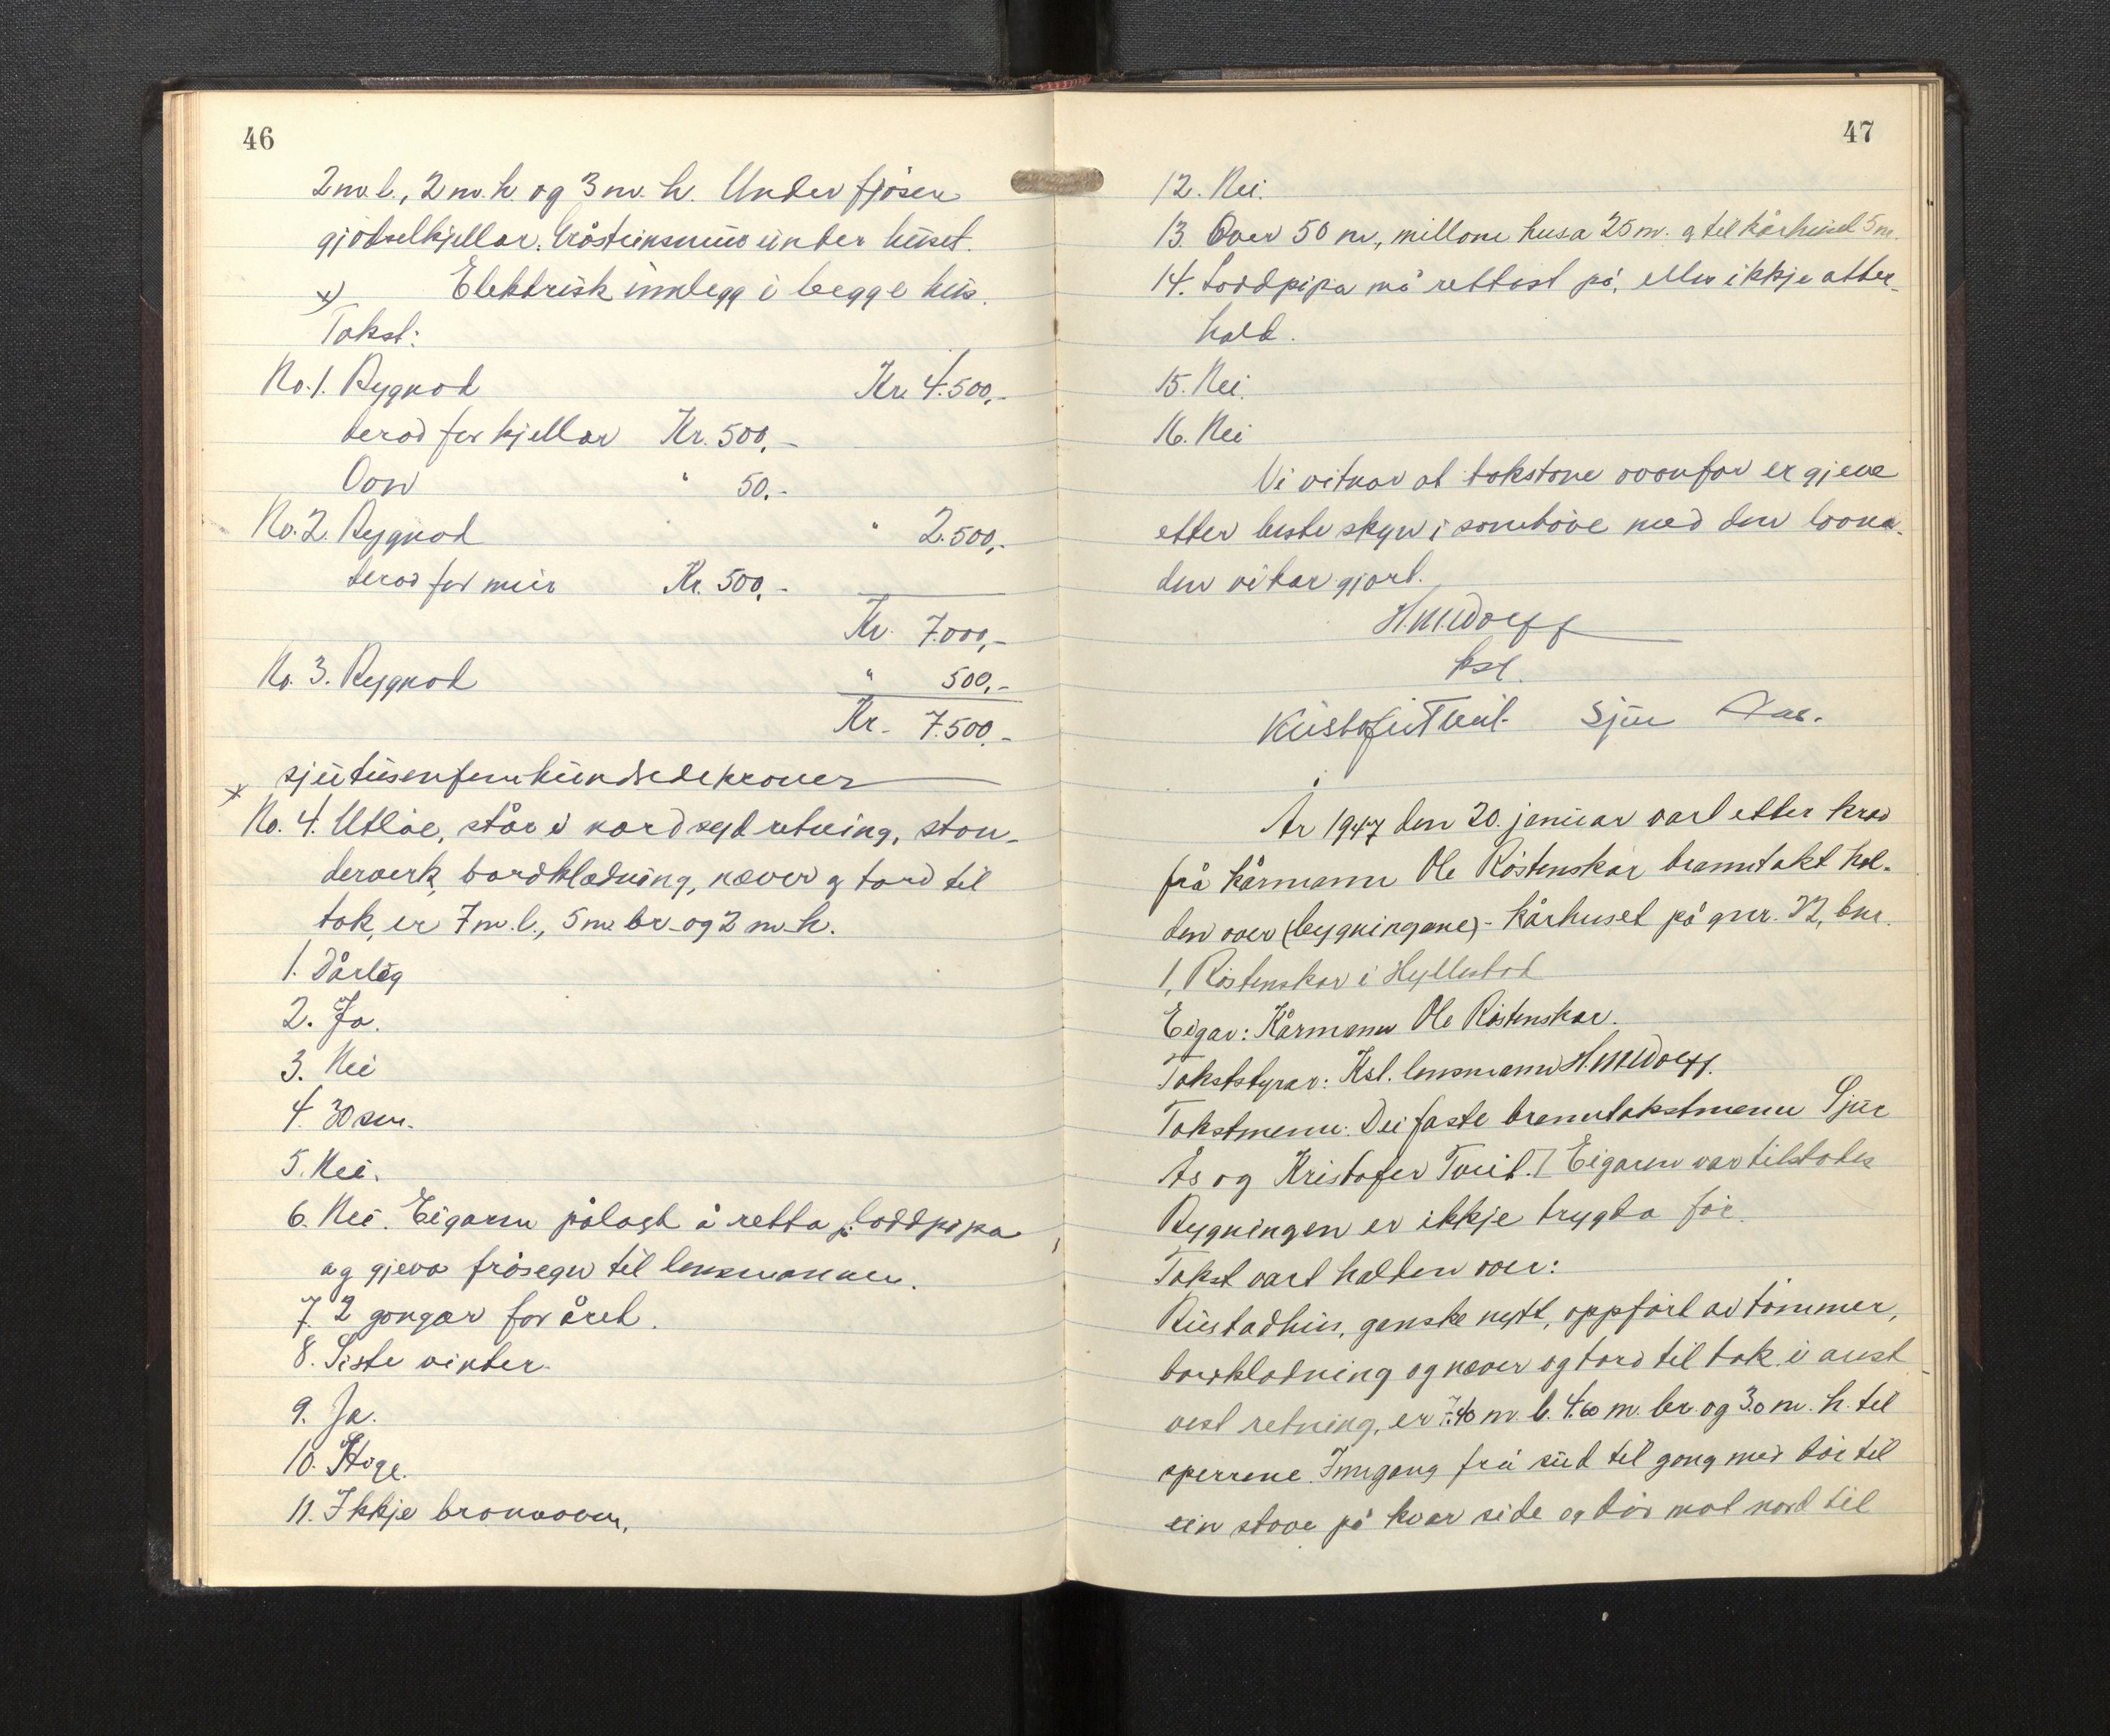 46
2 m. l., 2 m. h. og 3 m. h. Under fjösen
gjödselkjellar. Gråsteinsmur under huset.
x) Elektrisk innlegg i begge hus.
Takst:
No. 1. Bygnad Kr. 4.500,-
derav for kjellar Kr. 500,-
Ovn " 50.-
No. 2. Bygnad " 2.500,-
derav for mur Kr. 500,-
Kr. 7.000,-
No. 3. Bygnad " 500,-
Kr. 7.500.-
sjutusenfemhundredekroner
x
No. 4. Utlöe, står i nord syd retning, sten-
derverk, bordklædning, næver og torv til
tak, er 7 m. l., 5 m. br. og 2 m. h.
1. Dårleg
2. Ja.
3. Nei
4. 30 cm.
5. Nei.
6. Nei. Eigaren pålagt å retta på loddpipa
og gjeva fråsegn til lensmannen.
7. 2 gongar for året.
8. Siste vinter.
9. Ja.
10. Höge.
11. Ikkje
47
12. Nei.
13. Over 50 m, millom husa 25 m. og til kårhuset 5 m.
14. Loddpipa må rettast på, elles ikkje atter-
hald.
15. Nei.
16. Nei
Vi vitnar at takstane ovanfor er gjeve
etter beste skyn i samhöve med den
den vi har gjort.
H. M. Wolff
kst.
Kristofer Tveit. Sjur Aas.
År 1947 den 20. januar vart etter krav
frå kårmann Ole Röstenskar branntakt hal-
den over (bygningane) - kårhuset på gnr. 22, bnr.
1, Röstenskar i Hyllestad
Eigar: Kårmann Ole Röstenskar.
Takststyrar: Kst. lensmann H. M. Wolff.
Takstmenn: Dei faste branntakstmenn Sjur
Ås og Kristofer Tveit. / Eigaren var tilstades
Bygningen er ikkje trygda för.
Takst vart halden over:
Bustadhus, ganske nytt, oppfört av tömmer,
bordklædning og næver og torv til tak i aust
vest retning, er 7.40 m. l. 4.60 m. br. og 3.0 m. h. til
sperrene. Inngang frå sud til gong med dör til
ein stove på kvar side og dör mot nord til